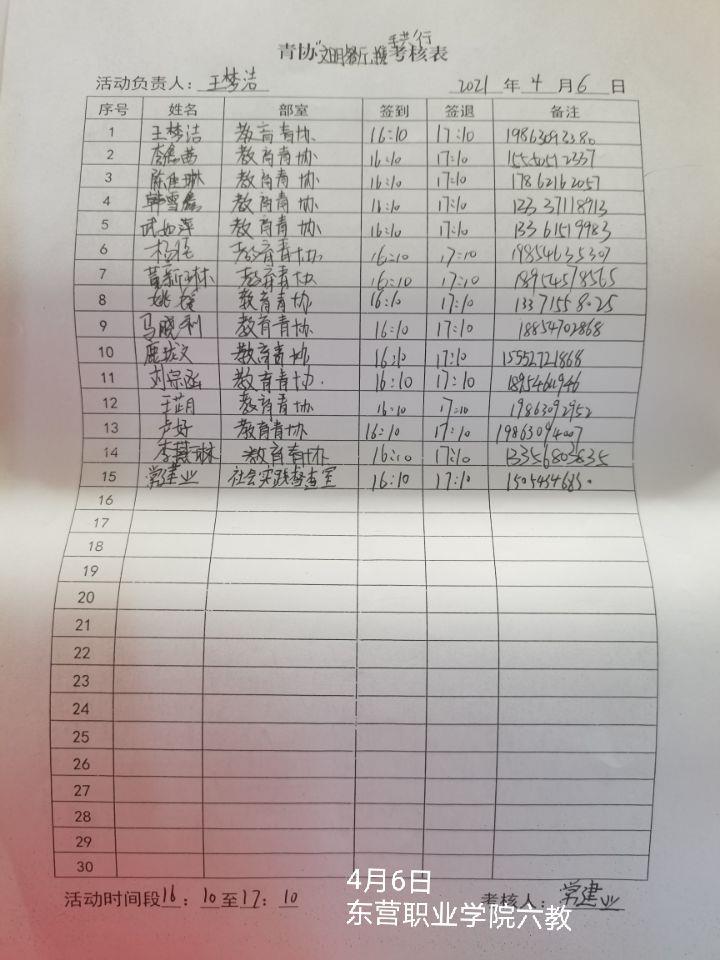 青协"文明餐厅,携手共行"考核表
活动负责人：王梦洁 2021 年 4 月 6 日
序号 姓名 部室 签到 签退 备注
1 王梦洁 教育青协 16:10 17:10 19863092380
2 教育青协 16:10 17:10
3 教育青协 16:10 17:10 17862162057
4 韩雪 教育青协 16:10 17:10 13337118913
5 武如萍 教育青协 16:10 17:10 13361519983
6 教育青协 16:10 17:10 19854635307
7 教育青协 16:10 17:10 18954578565
8 姚 教育青协 16:10 17:10 13371558025
9 马晓利 教育青协 16:10 17:10 18854702868
10 教育青协 16:10 17:10 15552721868
11 刘宗函 教育青协 16:10 17:10
12 王萌 教育青协 16:10 17:10 19863092952
13 卢好 教育青协 16:10 17:10 19863094007
14 李薇琳 教育青协 16:10 17:10 13356803835
15 常建业 社会实践督查室 16:10 17:10
16
17
18
19
20
21
22
23
24
25
26
27
28
29
30
活动时间段16：10至17：10 考核人：常建业
4月6日
东营职业学院六教